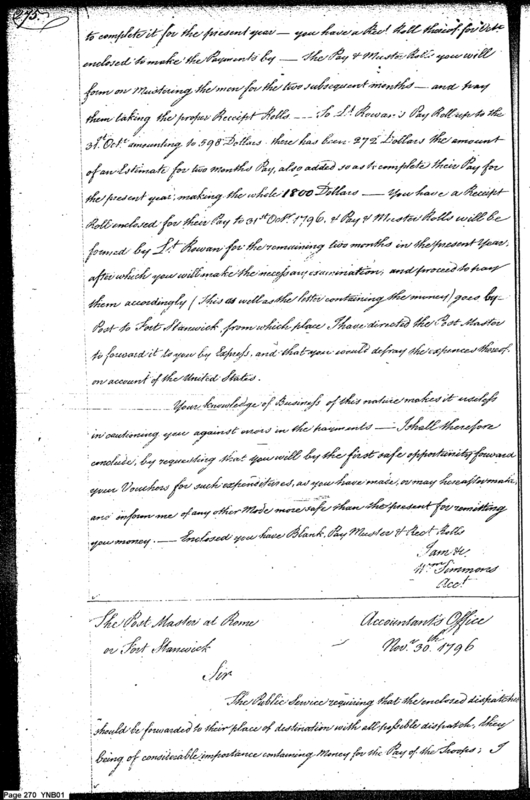 275.
to complete it for the present year — you have a Rect. Roll thereof for Octr.
enclosed to make the Payments by — The Pay & Muster Rolls you will
form on Mustering the men for the two subsequent months — and pay
them taking the proper Receipt Rolls — To Lt. Rowan's Pay Roll up to the
31st. Octr. amounting to 598 Dollars there has been 272 Dollars the amount
of an Estimate for two months Pay, also added so as to complete their Pay for
the present year, making the whole 1800 Dollars — You have a Receipt
Roll enclosed for their Pay to 31st Octr. 1796, & Pay & Muster Rolls will be
formed by Lt. Rowan for the remaining two months in the present Year,
after which you will make the necessary examination, and proceed to pay
them accordingly (This as well as the letter containing the money) goes by
Post to Fort Stanwick, from which place I have directed the Post Master
to forward it to you by Express, and that you would defray the expences thereof
on account of the United States.
Your knowledge of Business of this nature makes it useless
in cautioning you against errors in the payments — I shall therefore
conclude, by requesting that you will by the first safe opportunity forward
your Vouchers for such expenditures, as you have made, or may hereafter make,
and inform me of any other Mode more safe than the present for remitting
you money. — Enclosed you have Blank Pay Muster & Rect. Rolls
I am &c.
Wm Simmons
Acct.
The Post Master at Rome
or Fort Stanwick
Accountant's Office
Novr. 30th. 1796
Sir
The Public Service requiring that the enclosed dispatches
should be forwarded to their place of destination with all possible dispatch, they
being of considerable importance containing Money for the Pay of the Troops; I
Page 270 YNB01